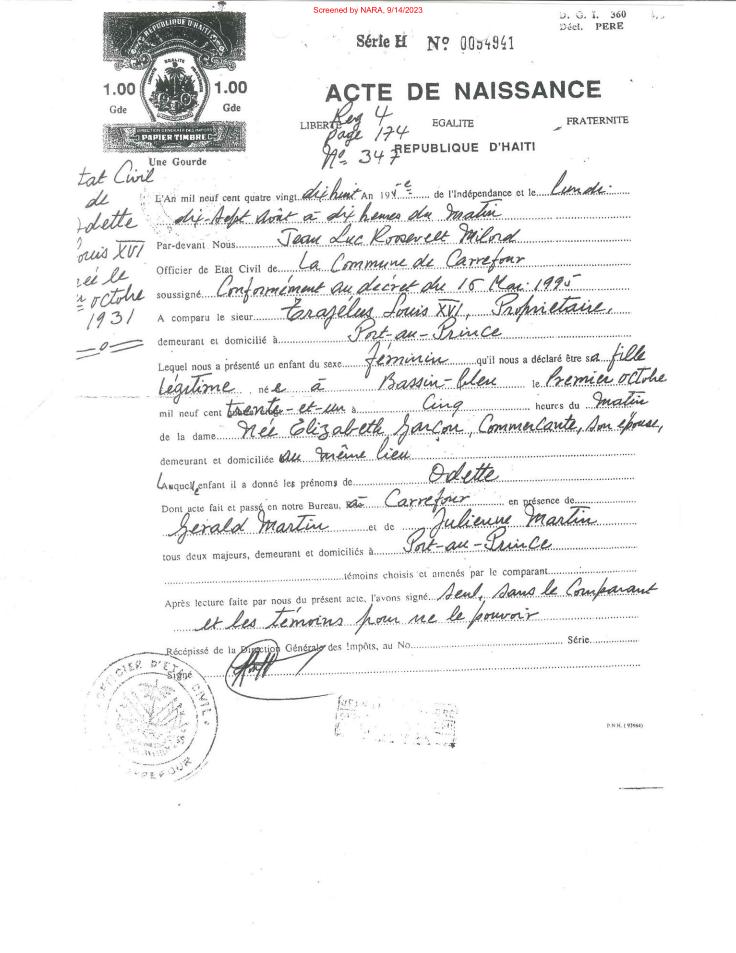 Screened by NARA, 9/14/2023
D. G. I. 360
Décl. PERE
Série H Nº 0054941
REPUBLIQUE D'HAITI
1.00 1.00
Gde Gde
DIRECTION GENERALE DES IMPOTS
PAPIER TIMBRE
Une Gourde
ACTE DE NAISSANCE
LIBERTE EGALITE FRATERNITE
Reg 4
Page 174
Nº 347
REPUBLIQUE D'HAITI
tat Civil
de
Odette
Louis XVI
née le
octobre
1931
L'An mil neuf cent quatre vingt dix huit An 195e de l'Indépendance et le lundi
dix-sept Août à dix heures du matin
Par-devant Nous Jean Luc Roosevelt Milord
Officier de Etat Civil de La Commune de Carrefour
soussigné Conformément au décret du 16 Mai 1995
A comparu le sieur Erajélus Louis XVI, Proprietaire,
demeurant et domicilié à Port-au-Prince
Lequel nous a présenté un enfant du sexe féminin qu'il nous a déclaré être sa fille
légitime née à Bassin-bleu le Premier octobre
mil neuf cent trente-et-un à Cinq heures du matin
de la dame Née Elizabeth Garçon, Commercante, son épouse,
demeurant et domiciliée au même lieu
Laquelle enfant il a donné les prénoms de Odette
Dont acte fait et passé en notre Bureau, à Carrefour en présence de
Gerald Martin et de Julienne Martin
tous deux majeurs, demeurant et domiciliés à Port-au-Prince
témoins choisis et amenés par le comparant
Après lecture faite par nous du présent acte, l'avons signé seul, sans le Comparant
et les témoins pour ne le pouvoir
Récépissé de la Direction Générale des Impôts, au No. Série
Signé
OFFICIER D'ETAT CIVIL
CARREFOUR
P.N.H. (93964)